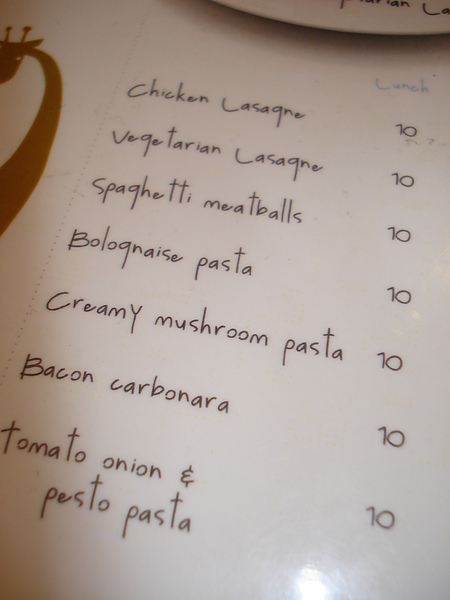 Lunch
Chicken Lasagne 10
Vegetarian Lasagne 10
Spaghetti meatballs 10
Bolognaise pasta 10
Creamy mushroom pasta 10
Bacon carbonara 10
tomato onion &
pesto pasta 10